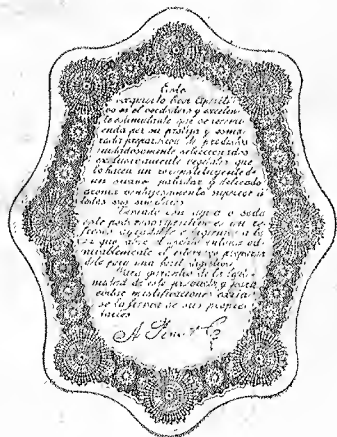 Este
exquisito licor aperiti-
vo es el verdadero y excelen-
te estimulante que se recomi-
enda por su prolija y esme-
rada preparación de productos
cuidadosamente seleccionados
exclusivamente vegetales que
lo hacen un reconstituyente de
un suave paladar y delicado
aroma completamente superior á
todos sus similares
Tomado con agua o soda
este poderoso aperitivo es un re-
fresco agradable e higiénico a la
vez que abre el apetito entona ad-
mirablemente el estómago preparan-
dolo para una fácil digestión
Para garantía de la legiti-
midad de este producto y para
evitar mistificaciones exíja-
se la firma de sus propie-
tarios
A. y Cª